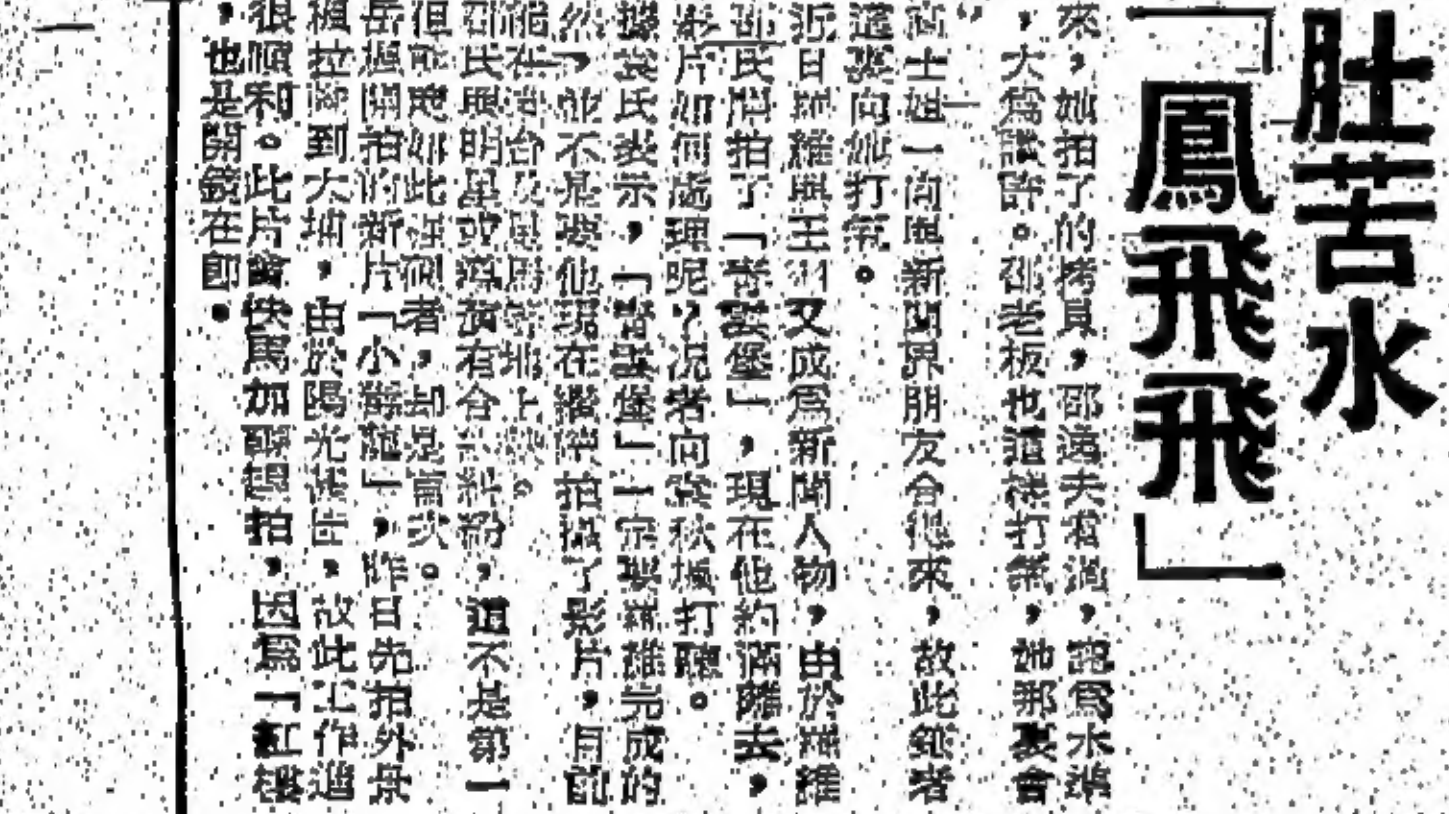 肚苦水
「鳳飛飛」
來,她拍了的拷貝,邵逸夫看過,認爲水準
,大爲讚許。邵老板也這樣打氣,她那裏會
士姐一向與新聞界朋友合得來,故此 者
這裏向她打氣。
近日羅維與王羽又成爲新聞人物,由於羅維
邵氏開拍了「 堡」,現在他約滿離去,
影片如何處理呢?記者向袁秋楓打聽。
據袁氏表示,「 堡」一定要羅維完成的
然,並不是要他現在繼續拍攝了影片,月前
能在港台及星馬等地上映。
邵氏與明星或導演有合約糾紛,這不是第一
但 如此 者,却是首次。
岳楓開拍的新片「小 龍」,昨日先拍外景
楓拉隊到大埔,由於陽光 佳,故此工作進
很順利。此片會快馬加鞭趕拍,因爲「紅樓
,也是開鏡在即。